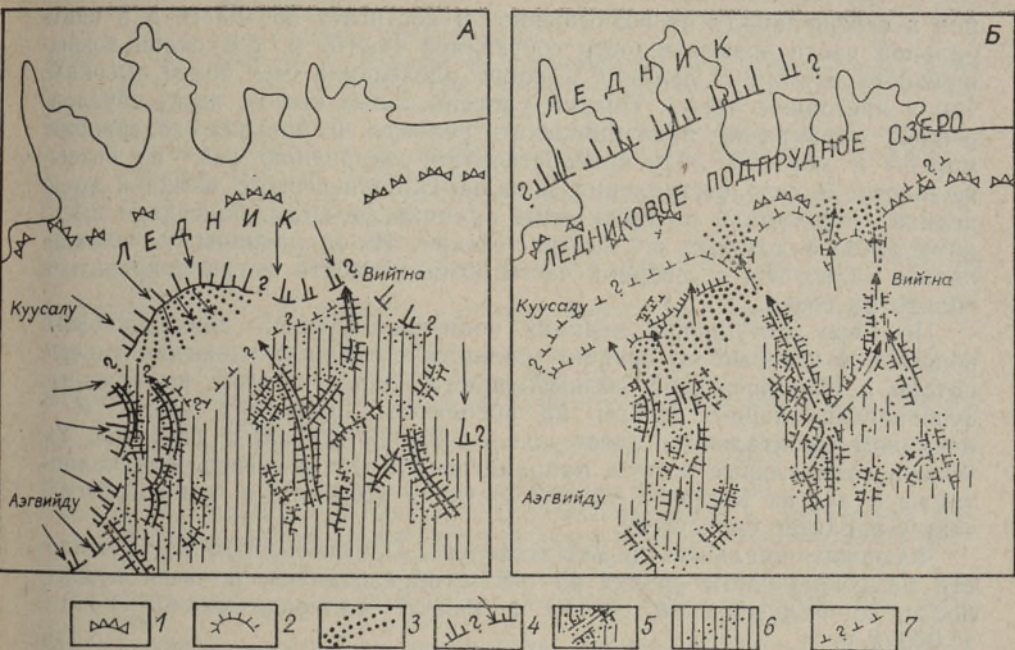 А
ЛЕДНИК
Куусалу
Вийтна
Аэгвийду
?
?
?
?
?
?
?
?
?
Б
ЛЕДНИК
?
?
ЛЕДНИКОВОЕ ПОДПРУДНОЕ ОЗЕРО
?
?
?
Куусалу
Вийтна
Аэгвийду
1
2
3
? 4
5
6
? 7